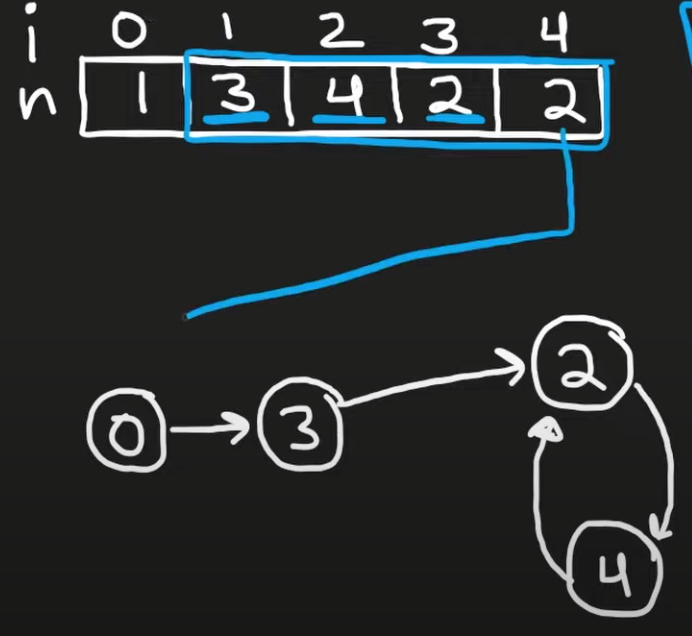 i 0 1 2 3 4
n 1 3 4 2 2
0 3 2
4